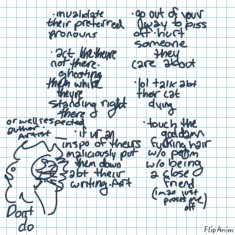 • invalidate
their preferred
pronouns
• act like they're
not there.
ghosting
them while
they're
standing right
there
or well respected
author
Artist
• if ur an
inspo of theirs
maliciously put
them down
abt their
writing/art
Don't
do
• go out of your
way to piss
off. hurt
someone
they
care about
• lol talk abt
their cat
dying
• touch the
goddamn
fucking hair
w/o permission
w/o being
a close
friend
off
FlipAnim